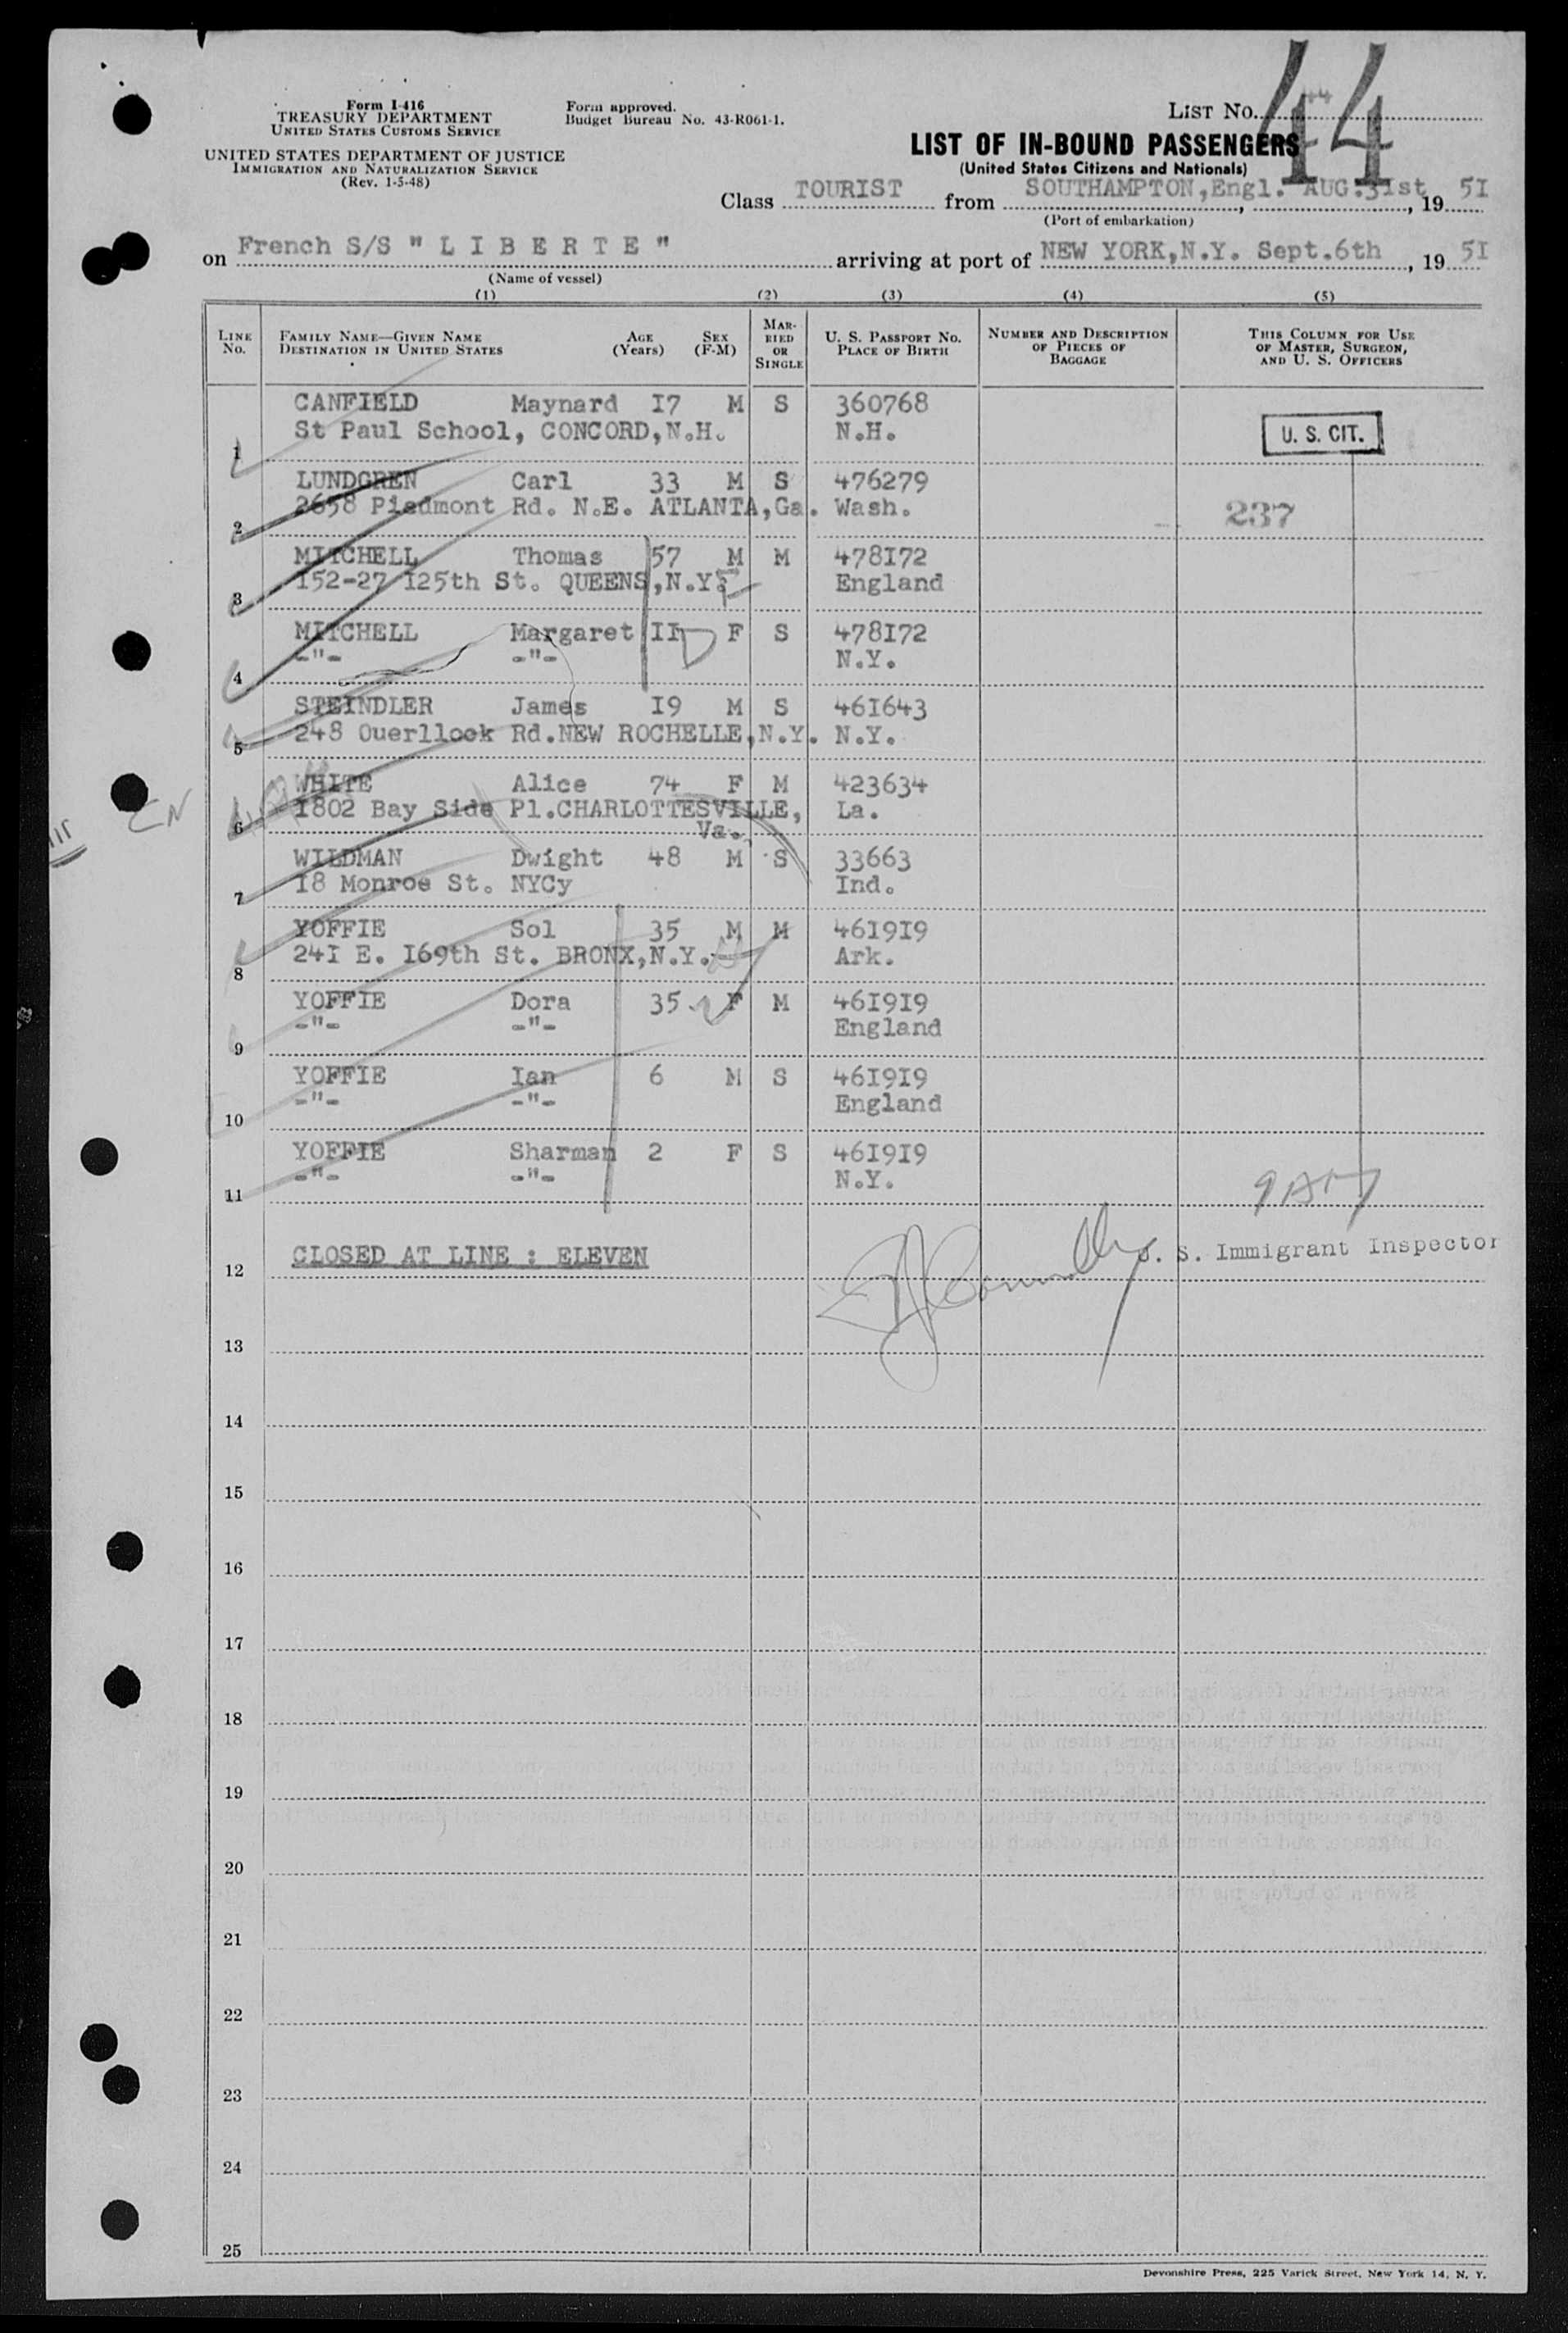 Form I-416
TREASURY DEPARTMENT
UNITED STATES CUSTOMS SERVICE
UNITED STATES DEPARTMENT OF JUSTICE
IMMIGRATION AND NATURALIZATION SERVICE
(Rev. 1-5-48)
Form approved.
Budget Bureau No. 43-R061-1.
LIST NO. 44
LIST OF IN-BOUND PASSENGERS
(United States Citizens and Nationals)
Class TOURIST from SOUTHAMPTON,Engl. AUG.31st, 19 51
(Port of embarkation)
on French S/S " L I B E R T E " arriving at port of NEW YORK,N.Y. Sept.6th, 19 51
(Name of vessel)
(1) (2) (3) (4) (5)
LINE NO.
FAMILY NAME—GIVEN NAME
DESTINATION IN UNITED STATES
AGE (Years)
SEX (F-M)
MARRIED OR SINGLE
U. S. PASSPORT NO.
PLACE OF BIRTH
NUMBER AND DESCRIPTION
OF PIECES OF
BAGGAGE
THIS COLUMN FOR USE
OF MASTER, SURGEON,
AND U. S. OFFICERS
CANFIELD Maynard I7 M S 360768
1 St Paul School, CONCORD,N.H. N.H.
U. S. CIT.
LUNDGREN Carl 33 M S 476279
2 2658 Piedmont Rd. N.E. ATLANTA,Ga. Wash.
237
MITCHELL Thomas 57 M M 478I72
3 I52-27 I25th St. QUEENS,N.Y. England
MITCHELL Margaret II F S 478I72
4 -"- -"- N.Y.
STEINDLER James I9 M S 46I643
5 248 Ouerllook Rd.NEW ROCHELLE,N.Y. N.Y.
WHITE Alice 74 F M 423634
6 I802 Bay Side Pl.CHARLOTTESVILLE, La.
Va.
WILDMAN Dwight 48 M S 33663
7 I8 Monroe St. NYCy Ind.
YOFFIE Sol 35 M M 46I9I9
8 24I E. I69th St. BRONX,N.Y. Ark.
YOFFIE Dora 35 F M 46I9I9
9 -"- -"- England
YOFFIE Ian 6 M S 46I9I9
10 -"- -"- England
YOFFIE Sharman 2 F S 46I9I9
11 -"- -"- N.Y.
9 AM
12 CLOSED AT LINE : ELEVEN
U. S. Immigrant Inspector
13
14
15
16
17
18
19
20
21
22
23
24
25
Devonshire Press, 225 Varick Street, New York 14, N. Y.